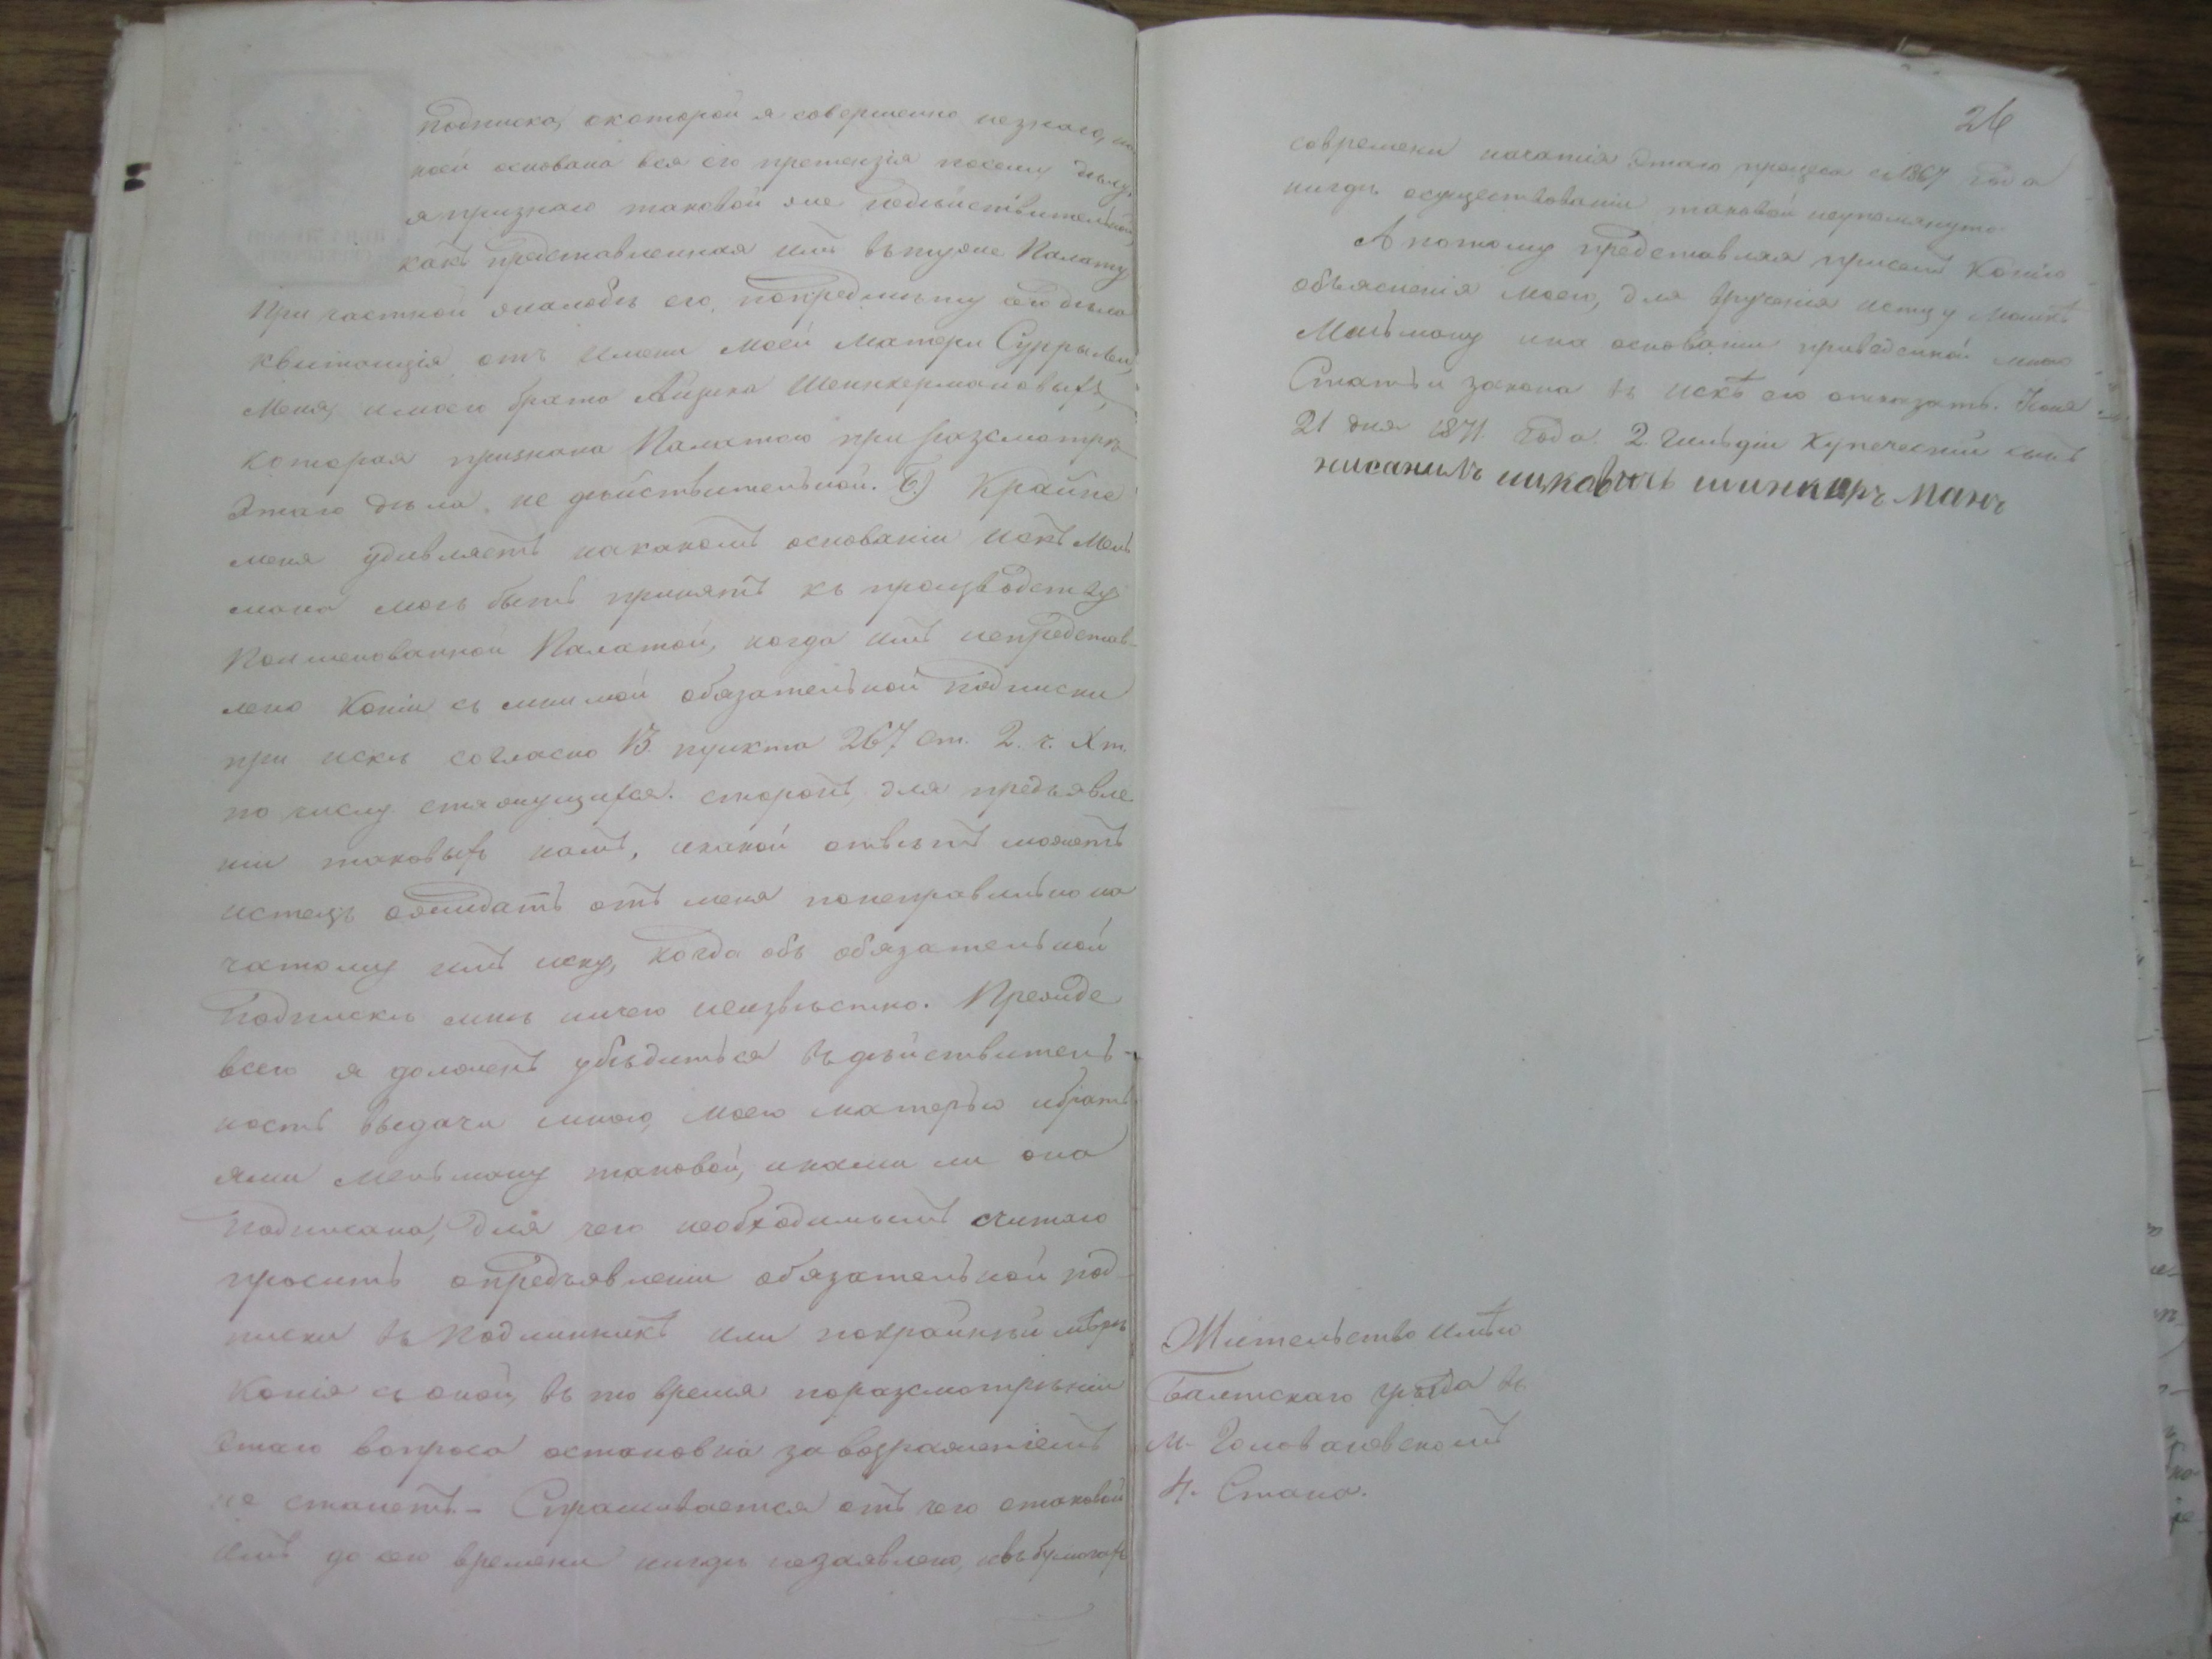 подписка, окоторой я совершенно незнаю, на
коей основана вся его претензія посему делу,
я признаю таковой же недѣйствительной,
какъ представленная имъ въ туже Палату
При частной жалобѣ его, попредмѣту сего дѣла
квитанція отъ имени моей матери Сурры Леи,
меня, и моего брата Айзика Шенкермановыхъ,
которая признана Палатою при разсмотрѣ
этаго дѣла, не дѣйствительной. Б.) Крайне
меня удивляетъ накакомъ основаніи искъ Мель
мана могъ быть принятъ къ производству
Поименованной Палатой, когда имъ непредстав-
лено Копіи съ мнимой обязательной подписки
при искѣ согласно 13. пункта 267 ст. 2. ч. X т.
по числу стяжущихся сторонъ, для предъявле
нія таковыхъ намъ, икакой отвѣтъ можетъ
истецъ ожидать отъ меня понеправильно на
чатому имъ иску, когда объ обязательной
Подпискѣ мнѣ ничего неизвѣстно. Прежде
всего я долженъ убѣдиться въ дѣйствитель-
ность выдачи мною, моею матерью ибрать
ями Мельману таковой, инами ли она
подписана, для чего необходимымъ считаю
просить опредъявленіи обязательной под-
писки въ Подлинникѣ или покрайней мѣрѣ
Копія съ оной, въ то время поразсмотрѣніи
этаго вопроса остановка завозраженіемъ
не станетъ. - Спрашивается отъ чего отаковой
имъ до сего времени нигдѣ незаявлено, ивъ бумагахъ
26
современи начатія этаго процеса съ 1867 года
нигдѣ осуществованіи таковой неупомянуто.
А потому представляя присемъ Копію
объясненія моего, для врученія истцу Мошкѣ
Мельману ина основаніи приведенной мною
Статьи закона въ искѣ его отказать. Июня
21 дня 1871 года. 2. Гильдіи Купеческій сынъ
нисанилъ ицковичъ шинкерманъ
Жительство имѣю
Балтскаго уѣзда въ
м. Голованевскомъ
4. Стана.